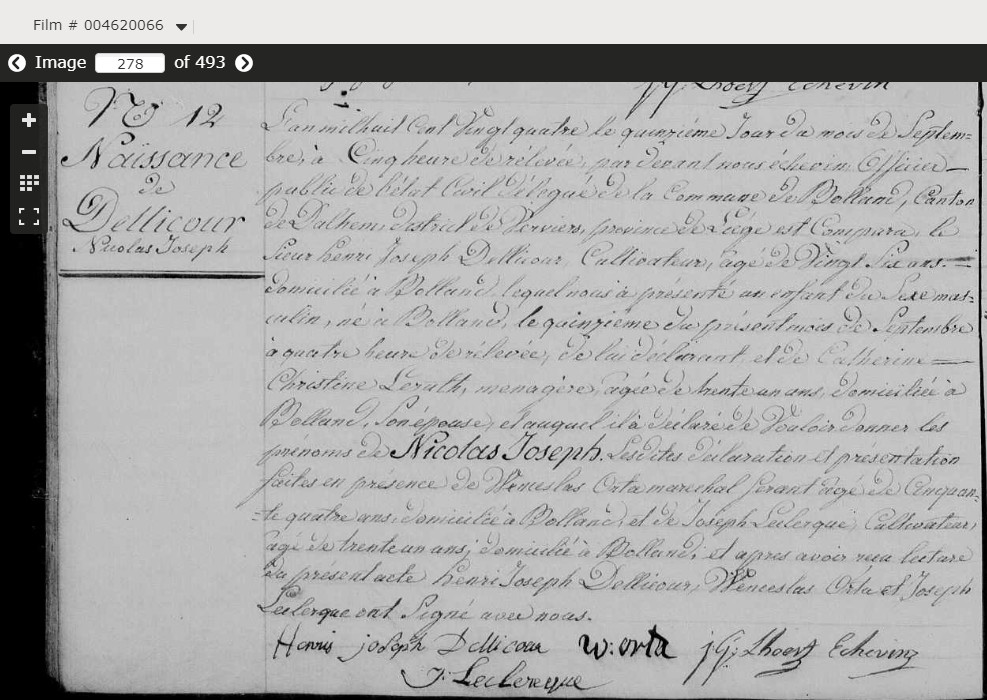 Film # 004620066
Image 278 of 493
J.G. Lhoest Echevin
No 12
Naissance
de
Dellicour
Nicolas Joseph
L'an mil huit Cent Vingt quatre le quinzième Jour du mois de Septem=
bre, à Cinq heure de rélevée, par devant nous échevin Officier
public de l'état Civil délégué de la Commune de Bolland, Canton
de Dalhem, district de Verviers, province de Liège est Comparu, le
Sieur henri Joseph Dellicour, Cultivateur, agé de Vingt Six ans.
domicilié à Bolland, lequel nous à présenté un enfant du Sexe mas=
culin, né à Bolland, le quinzième du présent mois de Septembre
à quatre heure de rélevée, de lui déclarant et de Catherine
Christine Leruth, menagère, agée de trente un ans, domiciliée à
Bolland, Son épouse, et auquel il à déclaré de Vouloir donner les
prénoms de Nicolas Joseph. Les dites déclaration et présentation
faites en présence de Wenceslas Orta marechal ferant agé de Cinquan=
=te quatre ans, domicilié à Bolland, et de Joseph Leclerque, Cultivateur,
agé de trente un ans, domicilié à Bolland, et apres avoir reçu lecture
du présent acte henri Joseph Dellicour, Wenceslas Orta et Joseph
Leclerque ont Signé avec nous.
Henris joseph Dellicour w: orta J.G. Lhoest Echevin
J. Leclereque